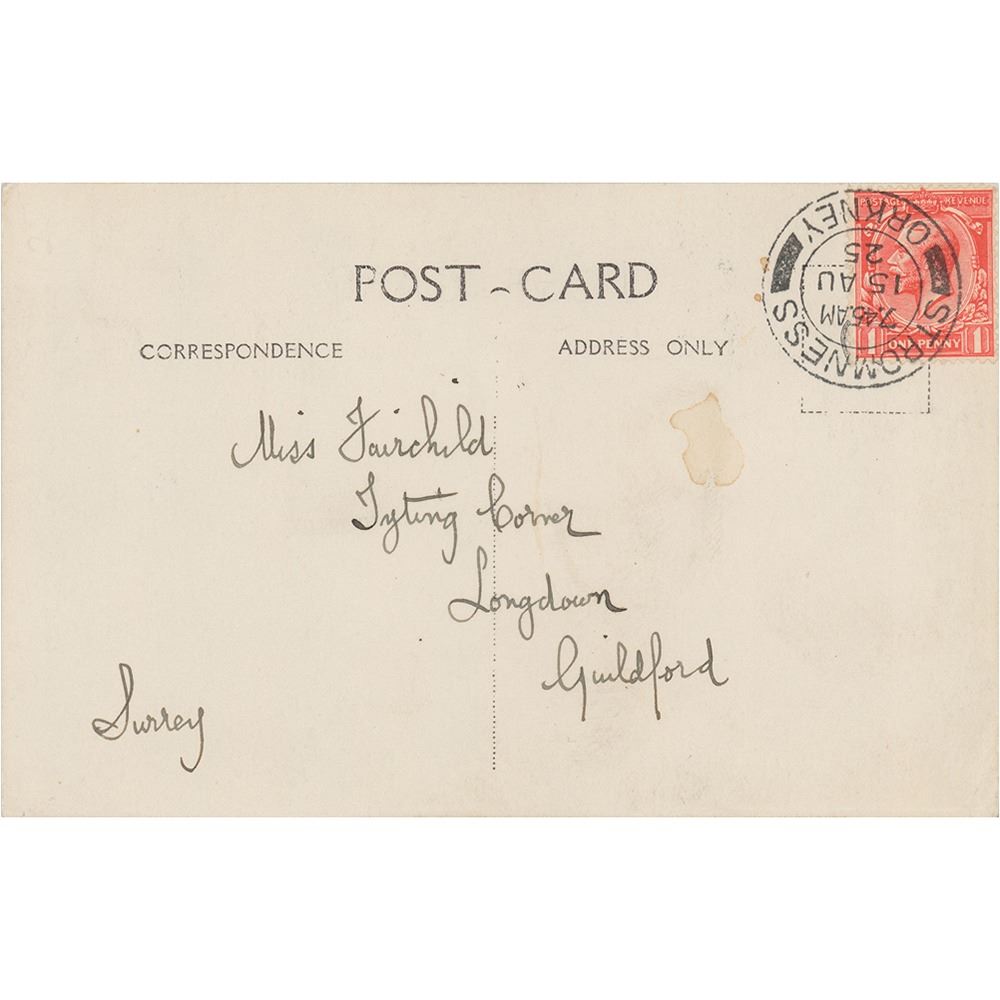 POSTAGE REVENUE
ORKNEY
25
15 AU
7.45 AM
STROMNESS
1 ONE PENNY 1
POST-CARD
CORRESPONDENCE ADDRESS ONLY
Miss Fairchild
Tyting Corner
Longdown
Guildford
Surrey